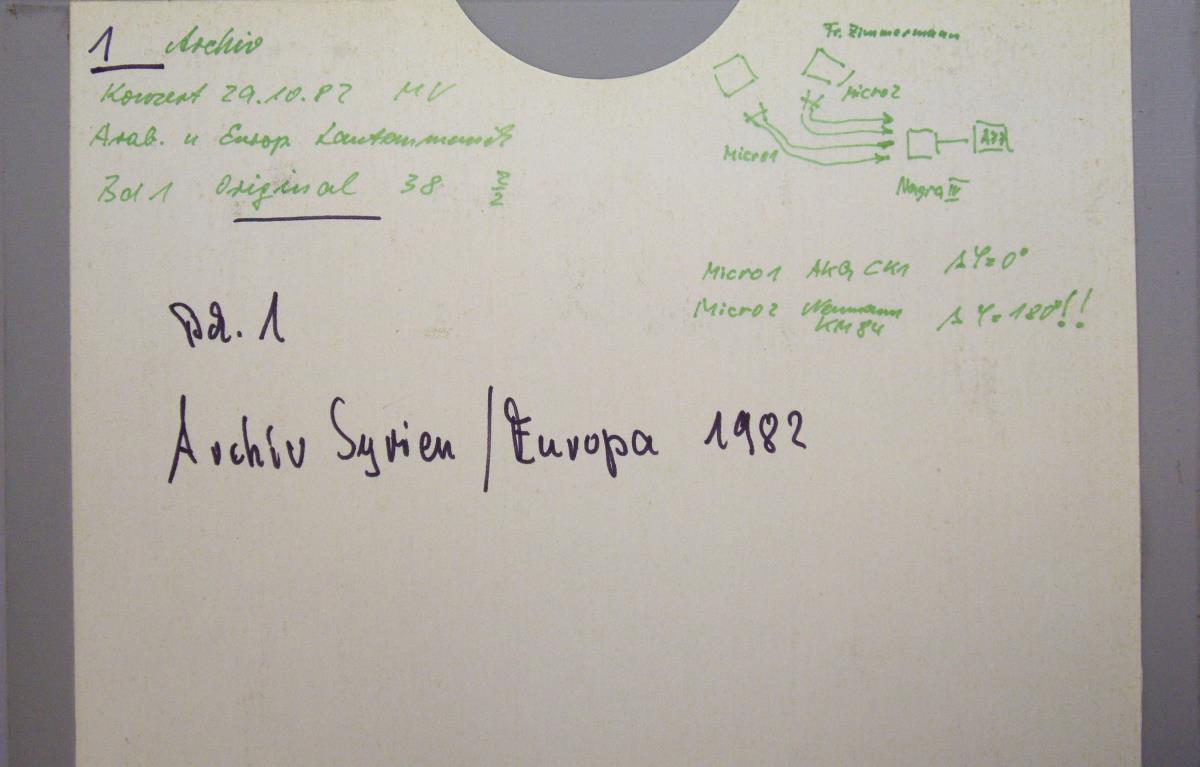 1 Archiv
Konzert 29.10.82 MV
Arab. u Europ Lautenmusik
Bd 1 Original 38
Fr. Zimmermann
Micro2
Micro1
Nagra IV
Micro1 AKG CK1 Δφ=0°
Micro2 Neumann KM84 Δφ=180°!!
Bd. 1
Archiv Syrien / Europa 1982